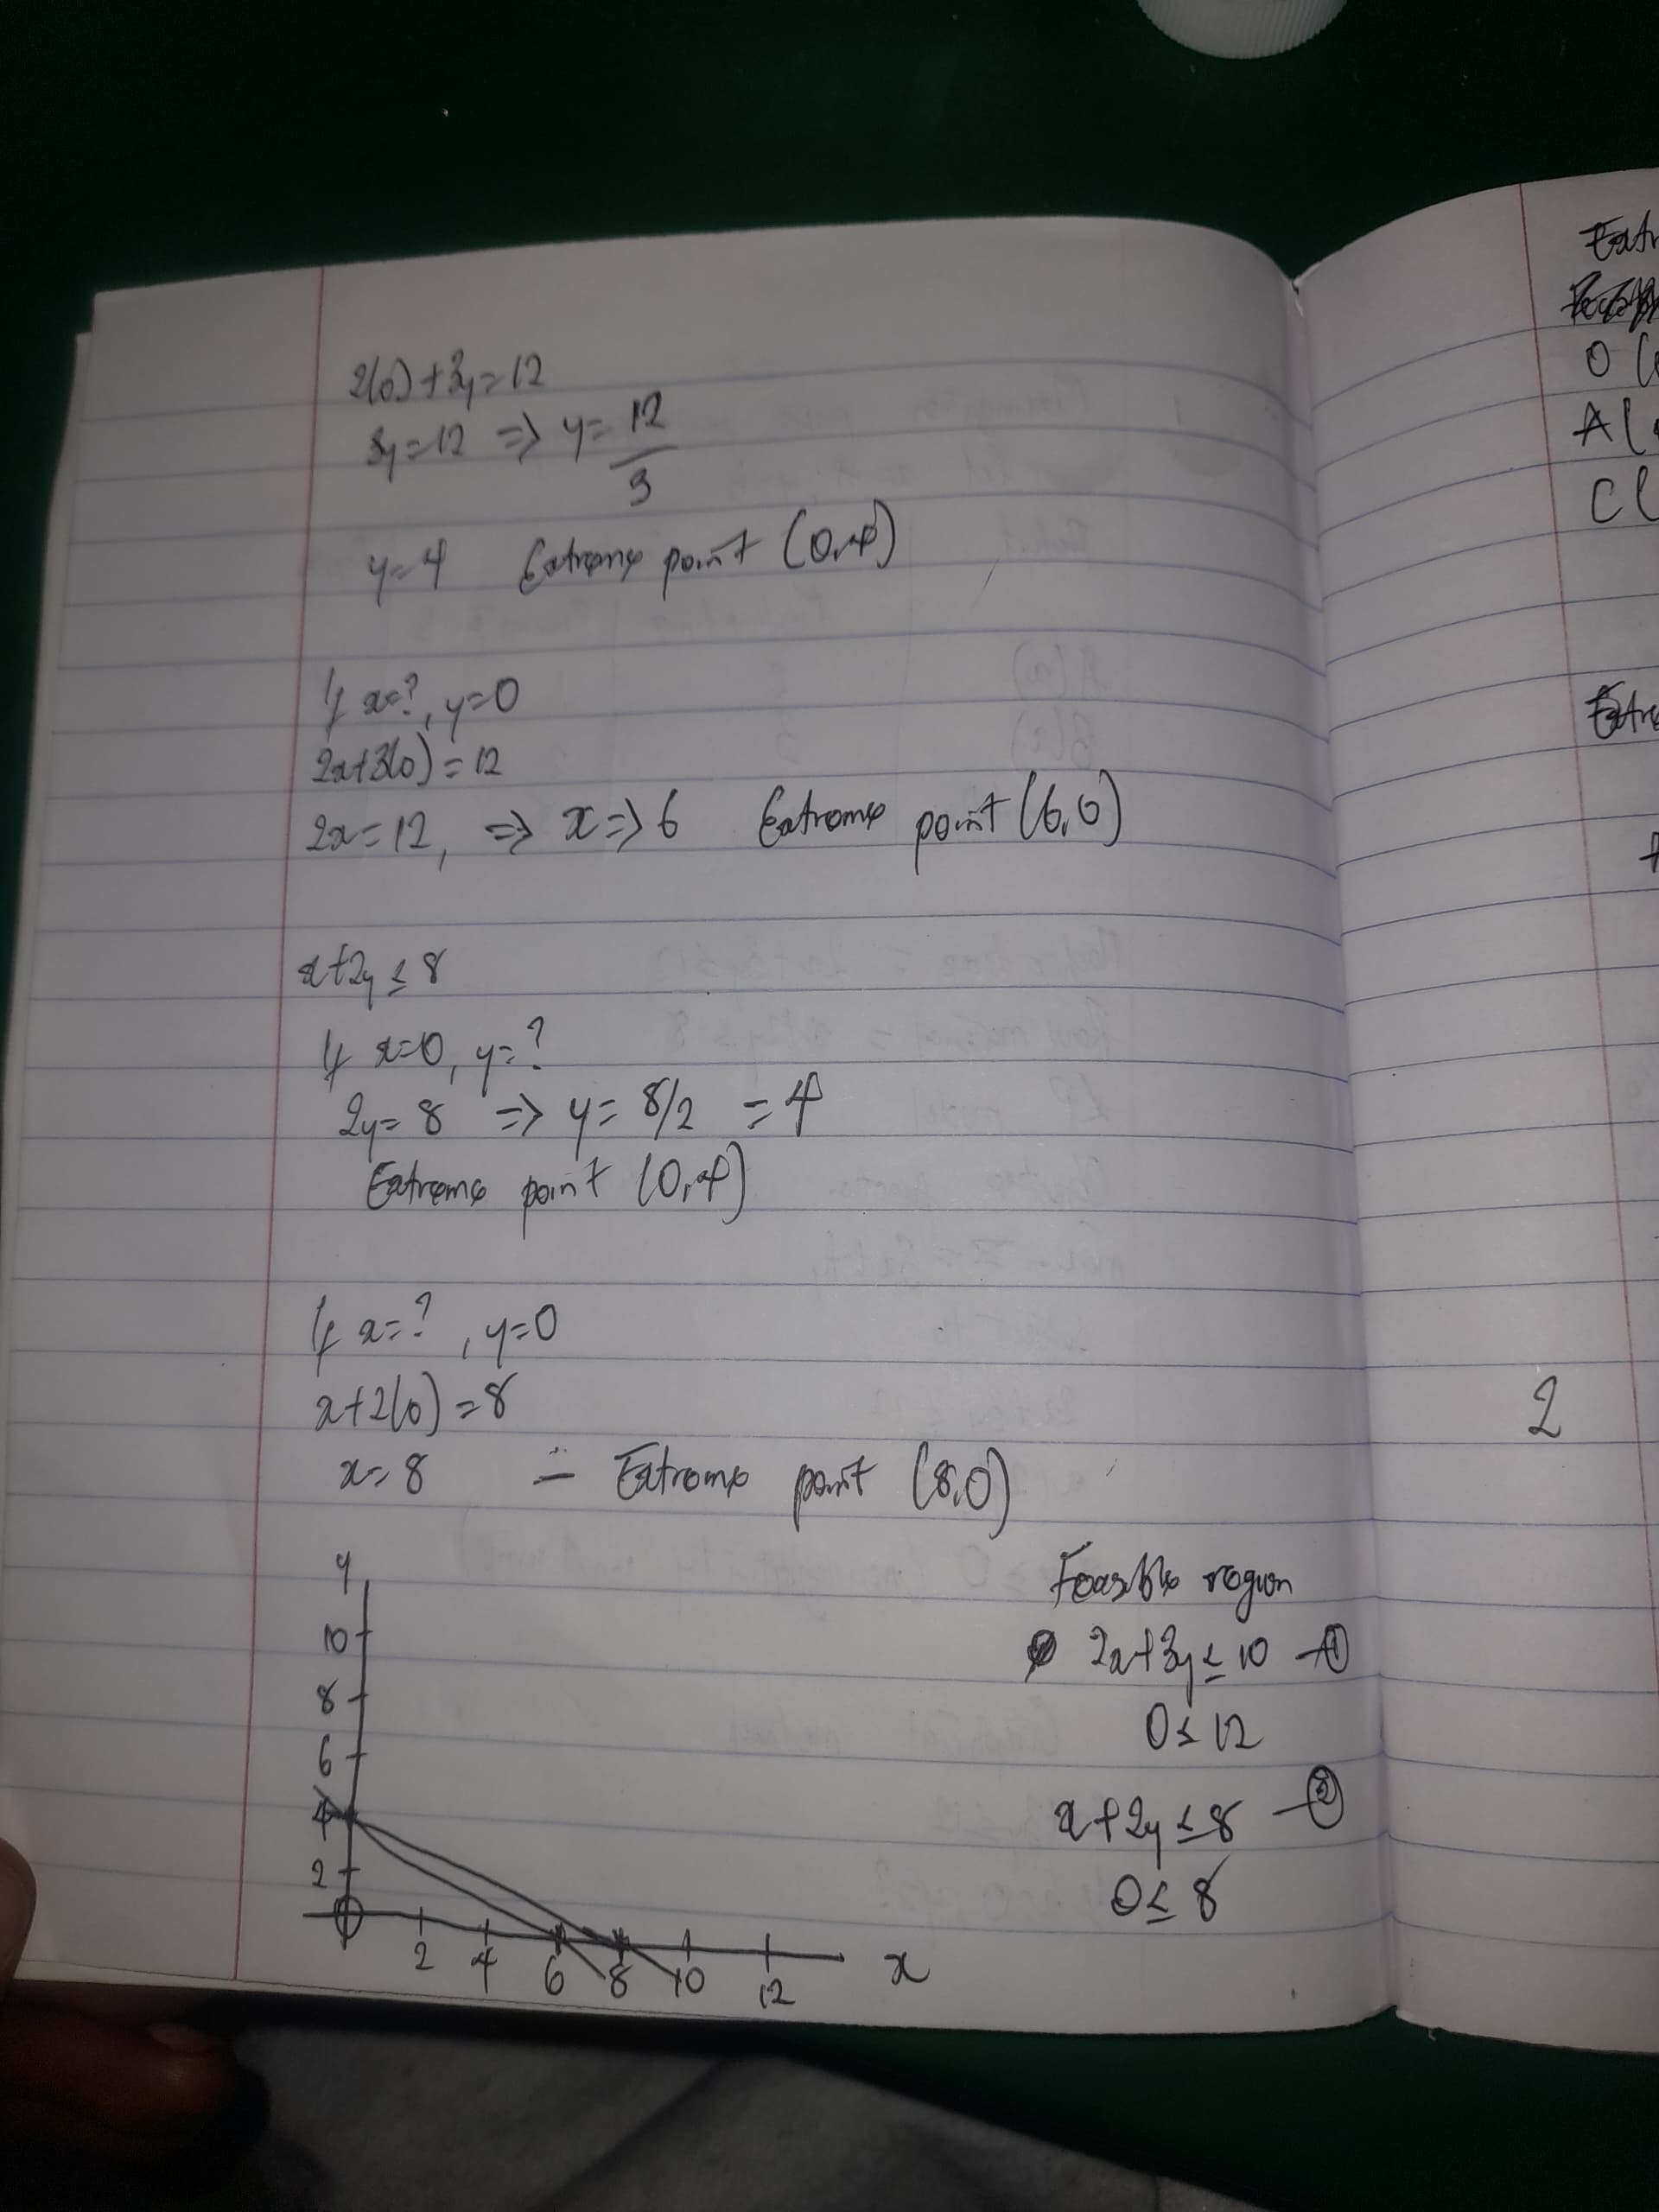 2(0) + 3y = 12
3y = 12 => y = 12/3
y = 4 Extreme point (0,4)
If x=?, y=0
2x+3(0) = 12
2x = 12, => x => 6 Extreme point (6,0)
x+2y ≤ 8
If x=0, y=?
2y = 8 => y = 8/2 = 4
Extreme point (0,4)
If x=?, y=0
x+2(0) = 8
x = 8 ∴ Extreme point (8,0)
y
10
8
6
4
2
0
2 4 6 8 10 12
x
Feasible region
2x+3y ≤ 10 - ①
0 ≤ 12
x+2y ≤ 8 - ②
0 ≤ 8
Extr
O (
A (
C (
Extre
2